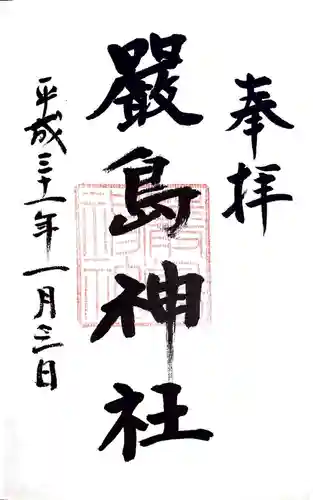 奉拝
嚴島神社
平成三十一年一月三日